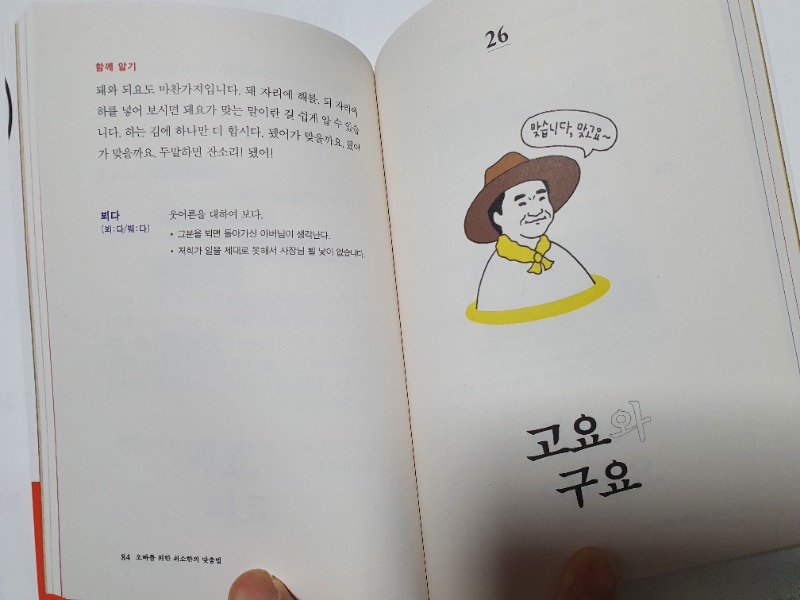 함께 알기
돼와 되요도 마찬가지입니다. 돼 자리에 해를, 되 자리에
하를 넣어 보시면 돼요가 맞는 말이란 걸 쉽게 알 수 있습
니다. 하는 김에 하나만 더 합시다. 됐어가 맞을까요, 됬어
가 맞을까요. 두말하면 잔소리! 됐어!
뵈다
[뵈:다/뷔:다]
웃어른을 대하여 보다.
• 그분을 뵈면 돌아가신 아버님이 생각난다.
• 저희가 일을 제대로 못해서 사장님 뵐 낯이 없습니다.
84 오빠를 위한 최소한의 맞춤법
26
맞습니다, 맞고요~
고요와
구요